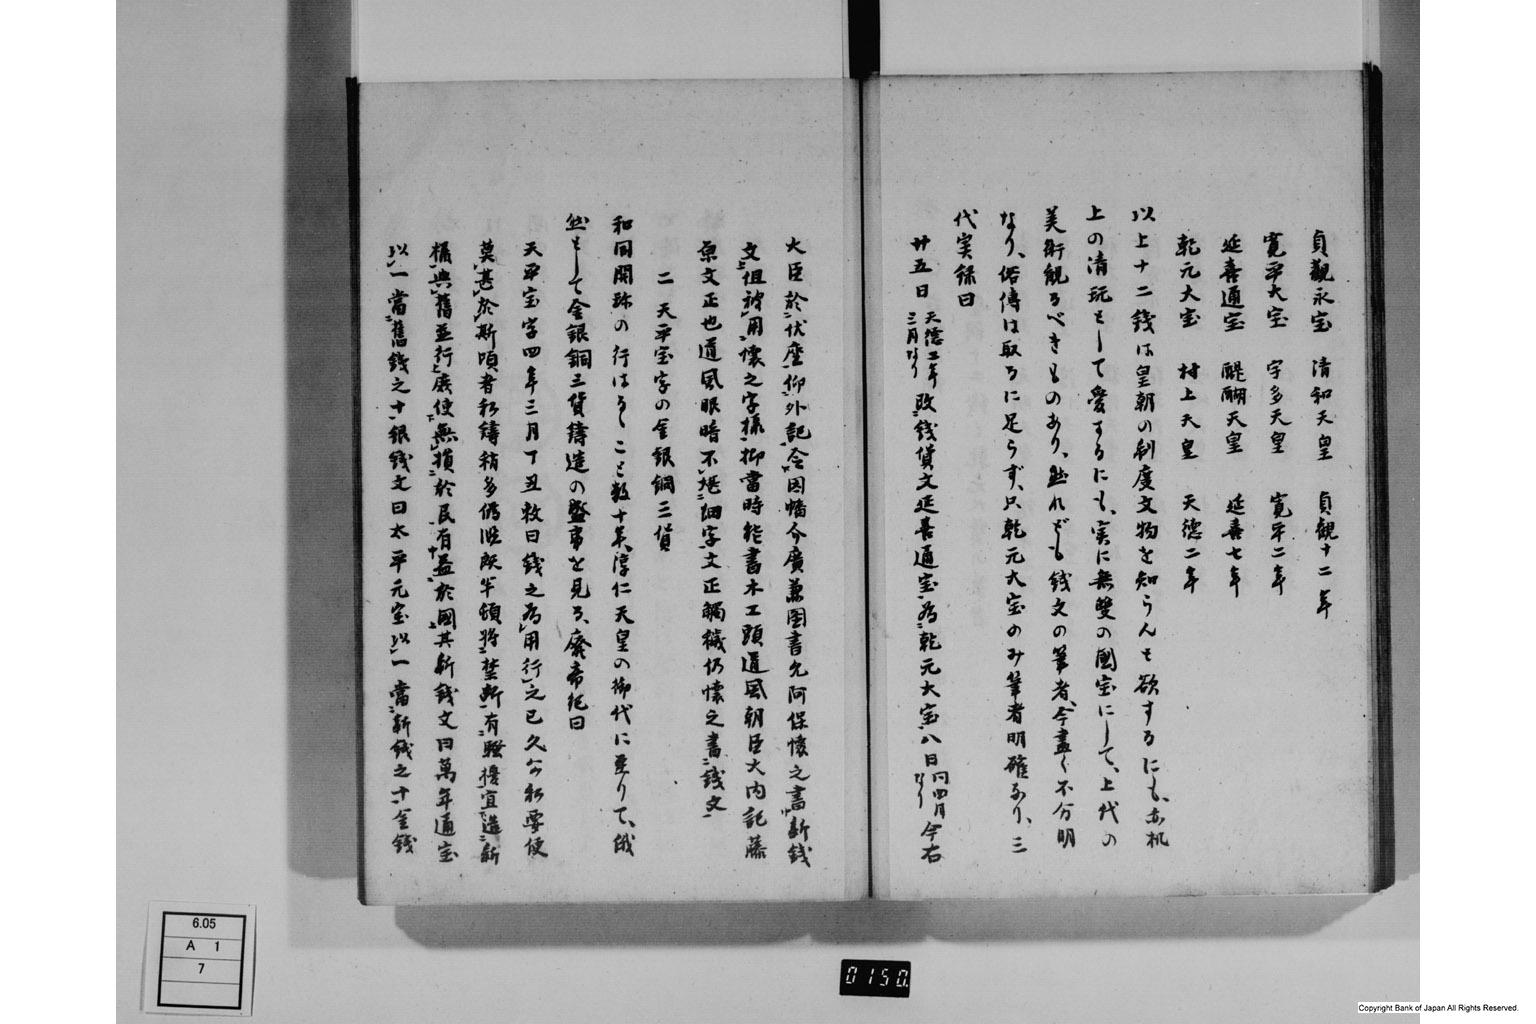 貞観永宝 清和天皇 貞観十二年
寛平大宝 宇多天皇 寛平二年
延喜通宝 醍醐天皇 延喜七年
乾元大宝 村上天皇 天徳二年
以上十二銭は皇朝の制度文物を知らんと欲するにも、亦机
上の清玩として愛するにも、実に無双の國宝にして、上代の
美術観るべきものあり、然れども銭文の筆者、今盡く不分明
なり、俗傳は取るに足らず、只乾元大宝のみ筆者明確なり、三
代実録曰
廿五日 天徳二年三月なり 改銭貨文延喜通宝為乾元大宝八日 同四月なり 今右
大臣於伏座仰外記令因幡介廣兼図書允阿保懐之書新銭
文但被用懐之字様抑當時能書木工頭道風朝臣大内記藤
原文正也道風眼暗不堪細字文正觸穢仍懐之書銭文
二 天平宝字の金銀銅三貨
和同開珎の行はるゝこと数十年、淳仁天皇の御代に至りて、俄
然として金銀銅三貨鋳造の盛事を見る、廃帝紀曰
天平宝字四年三月丁丑敕曰銭之為用行之已久公私要便
莫甚於斯頃者私鋳稍多偽濫既半頓将禁断有騒擾宜造新
様與舊並行庶使無損於民有益於國其新銭文曰萬年通宝
以一當舊銭之十銀銭文曰太平元宝以一當新銭之十金銭
6.05
A 1
7
0150.
Copyright Bank of Japan All Rights Reserved.